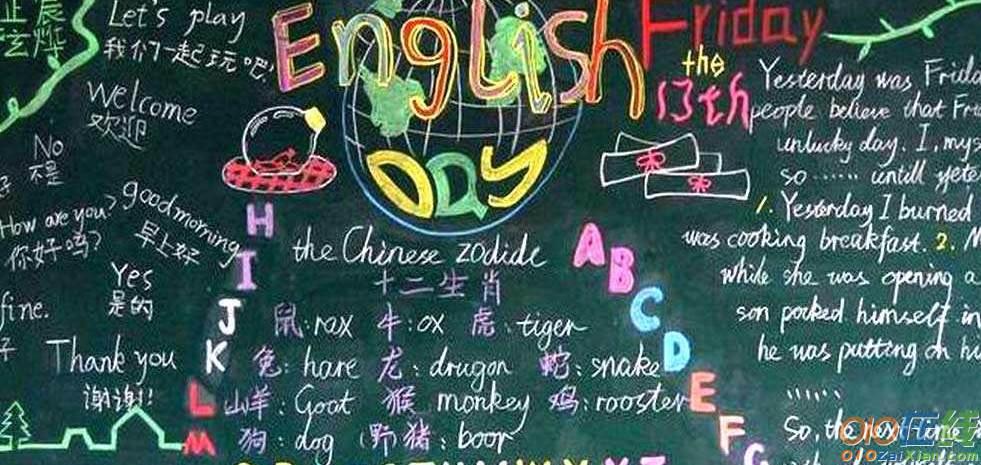 Let's play
我们一起玩吧!
Welcome
欢迎
No
不是
How are you?
你好吗?
good morning
早上好
Yes
是的
fine.
Thank you
谢谢!!
English
Day
the Chinese zodide
十二生肖
鼠:rax 牛:ox 虎:tiger
兔:hare 龙:drugon 蛇:snake
山羊:Goat 猴 monkey 鸡:rooster
狗:dog 野猪:boor
H
I
J
K
L
M
A
B
C
D
E
F
G
Friday
the
13th
Yesterday was Frida
people believe that Fr
unlucky day. I, mys
so ...... untill yete
1. Yesterday I burned
was cooking breakfast. 2. M
while she was opening a
son pocked himself in
he was putting on hi
......
So, the
010在线
010ZaiXian.com